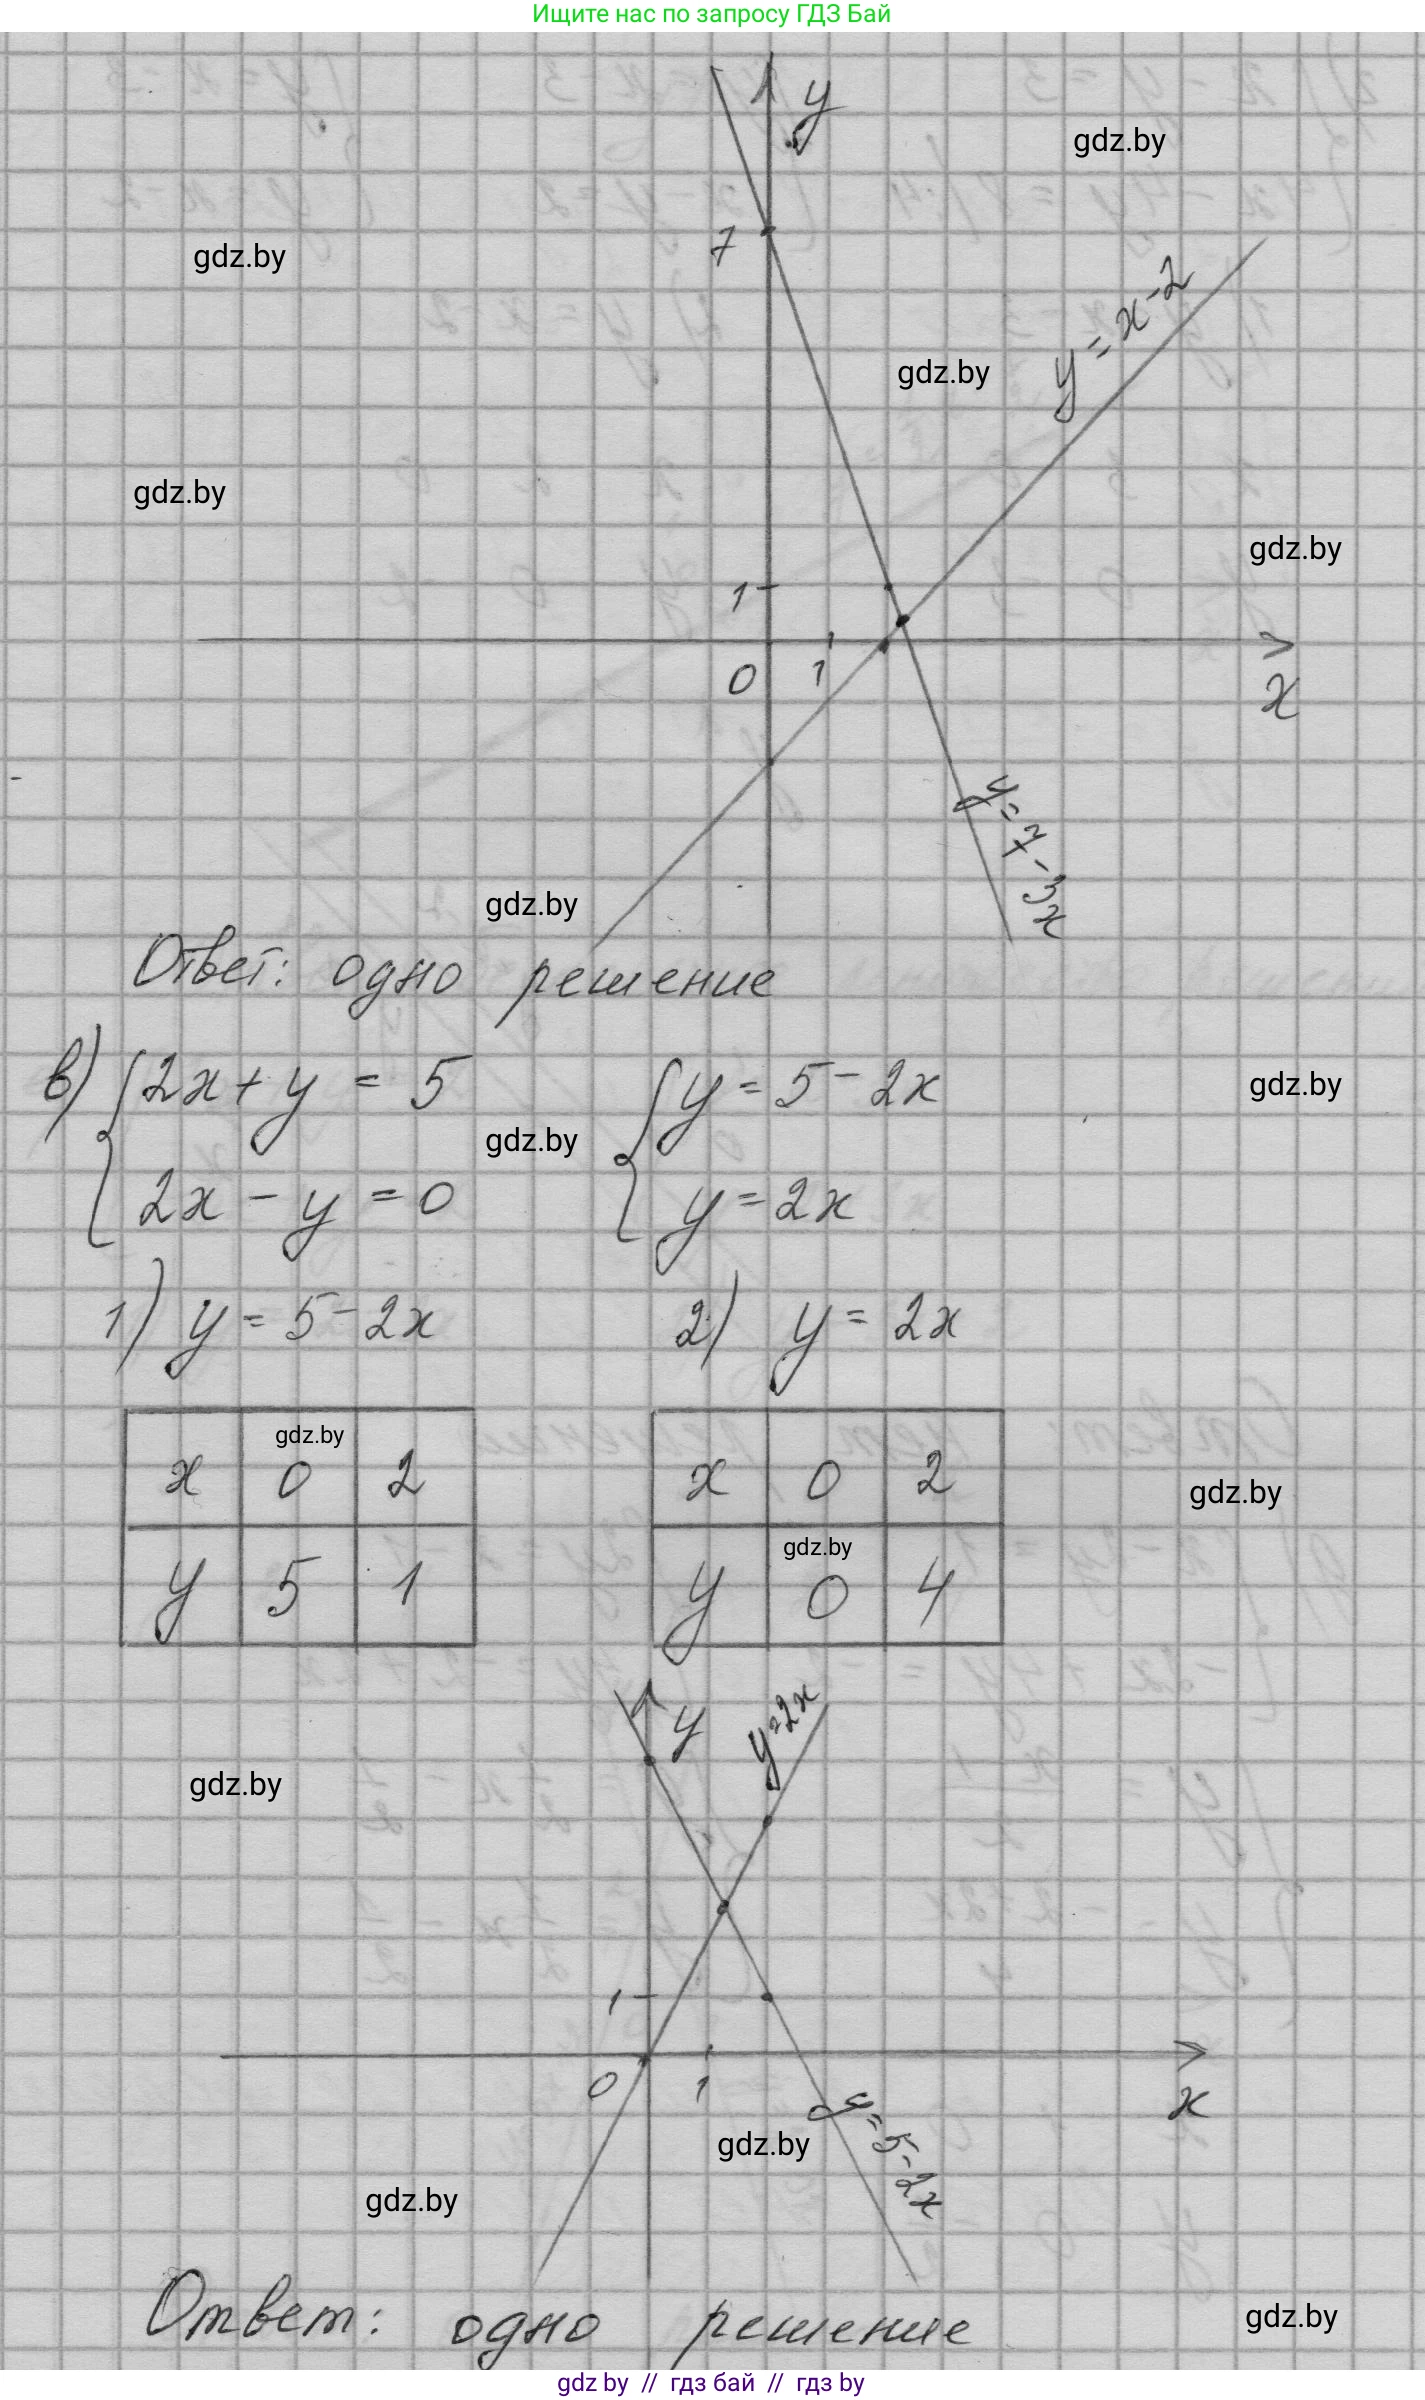 Ищите нас по запросу ГДЗ Бай
y
gdz.by
7
gdz.by
y = x - 2
gdz.by
gdz.by
gdz.by
1
0 1
x
y = 7 - 3x
gdz.by
Ответ: одно решение
в) { 2x + y = 5 { y = 5 - 2x
gdz.by
gdz.by
2x - y = 0 y = 2x
1) y = 5 - 2x 2) y = 2x
gdz.by
x 0 2 x 0 2
gdz.by
gdz.by
y 5 1 y 0 4
y y = 2x
gdz.by
1
0 1
x
y = 5 - 2x
gdz.by
gdz.by
Ответ: одно решение
gdz.by
gdz by // гдз бай // гдз by